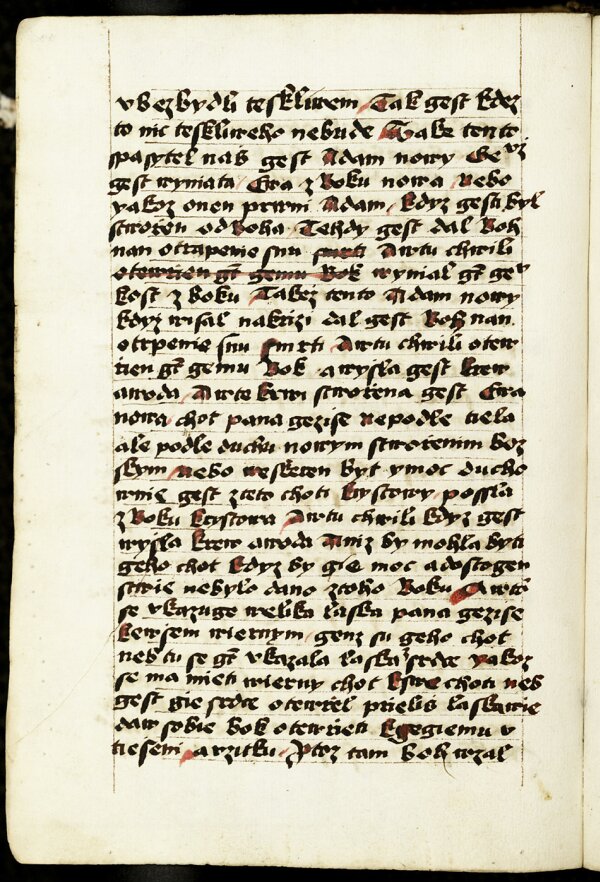 v bezbydli tesklivem Tak gest kdez
to nic teskliveho nebude Take tento
spasytel nass gest Adam nowy Ge
gest wyniata Eva z Boku nowa Nebo
yakoz onen prwni Adam kdyz gest byl
stworzen od Boha Tehdy gest dal Boh
nan otrapenie snu smrti A wtu chwili
otewrzien gt gemu Bok wynial gt gey
kost z boku Takez tento Adam nowy
kdyz wisal nakrizi dal gest Boh nan
otrpenie snu smrti A wtu chwili otew
rzien gt gemu Bok a wysla gest krew
a woda A wte krwi stworzena gest Eva
nowa chot pana gezise Ne podle tiela
ale podle duchu nowym stworzenim boz
skym Nebo weskeren byt y moc ducho
wnie gest z teto choti krystowy possla
z Boku krystowa A wtu chwili kdyz gest
wysla krew a woda Aniz by mohla byti
geho chot kdyz by gie moc a dostogen
stwie nebylo dano z toho Boku A wtom
se vkazuge welika laska pana gezise
kewsem wiernym genz su geho chot
neb tu se gt vkazala laska srdce yakoz
se ma mieti wierny chot kswe choti neb
gest gie srdce otewrzel prielis laskawie
daw sobie bok otewrzieti k gegiemu v
tiesseni a vzitku Ptoz tam boh wzal